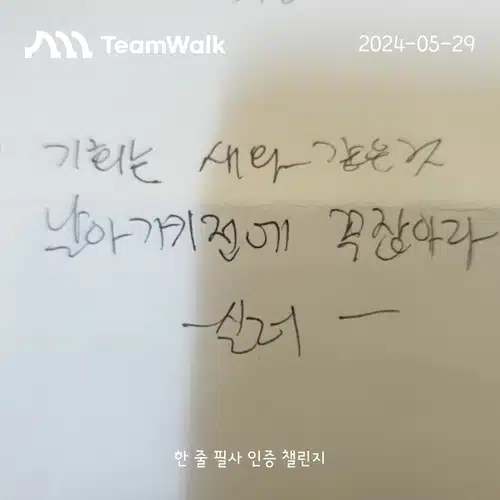 TeamWalk
2024-05-29
기회는 새와 같은것
날아가키전에 꼭잡아라
-실러 -
한 줄 필사 인증 챌린지